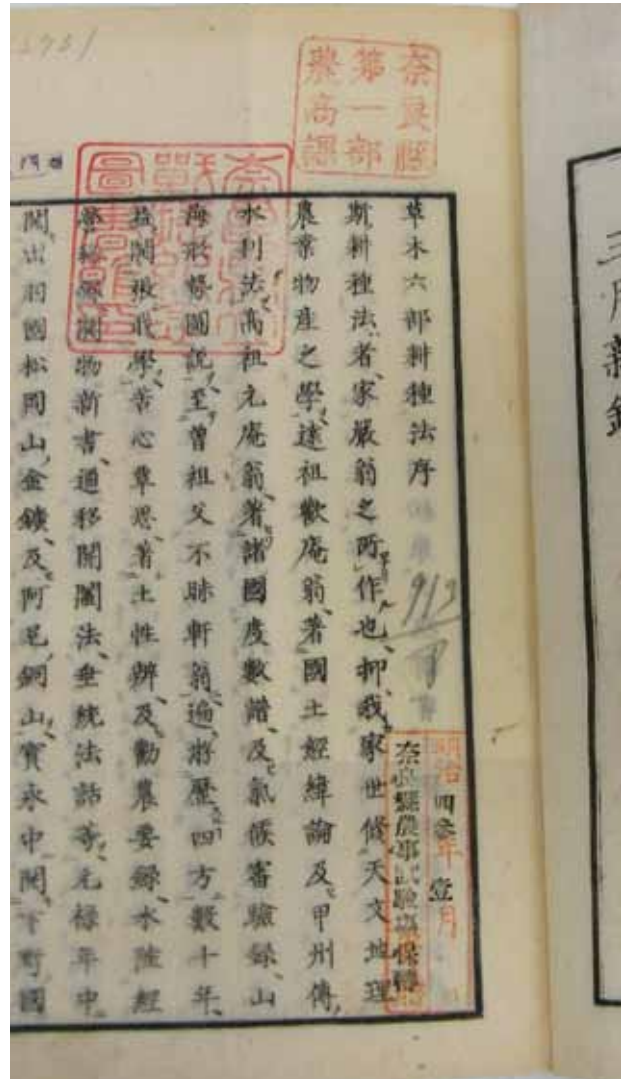 三月新
奈良縣
第一部
農商課
草木六部耕種法序
913
斯耕種法者、家嚴翁之所作也、抑我家世修天文地理
農業物産之學、遠祖歡庵翁、著國土經緯論及甲州傳、
水利法、高祖元庵翁、著諸國度數譜、及氣候審驗錄、山
海形勢圖說、至曾祖父不昧軒翁、遍游歷四方、數十年、
益開擴我學、苦心覃思、著土性辨、及勸農要錄、水陸經
開物新書、通移開闔法、垂統法話等、元祿年中
開出羽國松岡山金鑛、及阿尼銅山、寶永中開下野國
明治四拾年壹月
奈良縣農事試驗場保轉